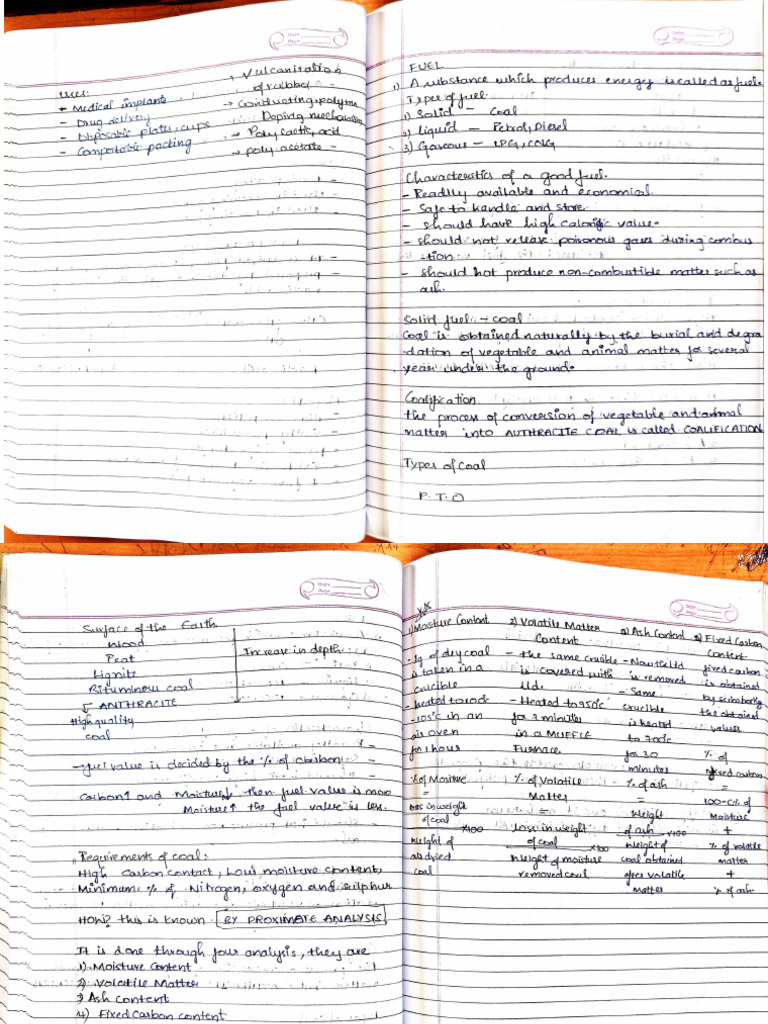 Date
Page
Uses:
+ Medical implants
- Drug delivery
- Disposable plates, cups
- Comportable packing
→ Vulcanization
of rubber
→ Conducting polymer
Doping mechanism
→ Poly lactic acid
→ poly acetate
Date
Page
FUEL
1) A substance which produces energy is called as fuels
Types of fuel.
1) Solid - Coal
2) Liquid - Petrol, Diesel
3) Gaseous - LPG, CNG
Characteristics of a good fuel.
- Readily available and economical
- Safe to handle and store
- should have high calorific value.
- should not release poisonous gases during combus
-tion
- should not produce non-combustible matter such as
ash.
Solid fuel - coal
Coal is obtained naturally by the burial and degra
dation of vegetable and animal matter for several
years under the ground.
Coalification
the process of conversion of vegetable and animal
matter into AUTHRACITE COAL is called COALIFICATION
Types of coal
P.T.O
Date
Page
Surface of the Earth
Wood
Peat
Lignite
Bituminous coal
↳ ANTHRACITE
High quality
coal
Increase in depth
→ fuel value is decided by the % of carbon
Carbon↑ and Moisture↓ then fuel value is more
Moisture↑ the fuel value is less.
Requirements of coal:
High Carbon contact, Low moisture content,
Minimum % of Nitrogen, oxygen and sulphur
HOW? this is known BY PROXIMATE ANALYSIS
It is done through four analysis, they are
1) Moisture Content
2) Volatile Matter
3) Ash content
4) Fixed carbon content
Date
Page
1) Moisture Content
- 1g of dry coal
is taken in a
crucible
- heated to 100c
- 105°c in an
air oven
for 1 hour
% of Moisture
=
loss in weight
of coal
x100
weight of
air dried
coal
2) Volatile Matter
Content
- the same crucible
is covered with
lid.
- Heated to 950°c
for 7 minutes
in a MUFFLE
Furnace
% of Volatile
Matter
=
Loss in weight
of coal
x100
weight of moisture
removed coal
3) Ash Content
- Now the lid
is removed
- Same
crucible
is heated
to 700°c
for 30
minutes
% of ash
=
weight
of ash x100
weight of
coal obtained
after volatile
matter
4) Fixed Carbon
Content.
fixed carbon
is obtained
by
the obtained
values
% of
fixed carbon
=
100-(% of
Moisture
+
% of volatile
matter
+
% of ash.